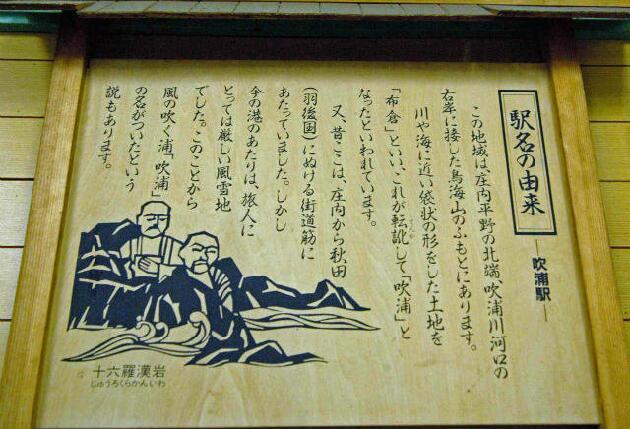 駅名の由来
―吹浦駅―
この地域は、庄内平野の北端吹浦川河口の
右岸に接した鳥海山のふもとにあります。
川や海に近い袋状の形をした土地を
「布倉」といい、これが転訛して「吹浦」と
なったといわれています。
又、昔ここは、庄内から秋田
(羽後国)にぬける街道筋に
あたっていました。しかし
今の港のあたりは、旅人に
とっては厳しい風雪地
でした。このことから
風の吹く浦、「吹浦」
の名がついたという
説もあります。
十六羅漢岩
じゅうろくらかんいわ